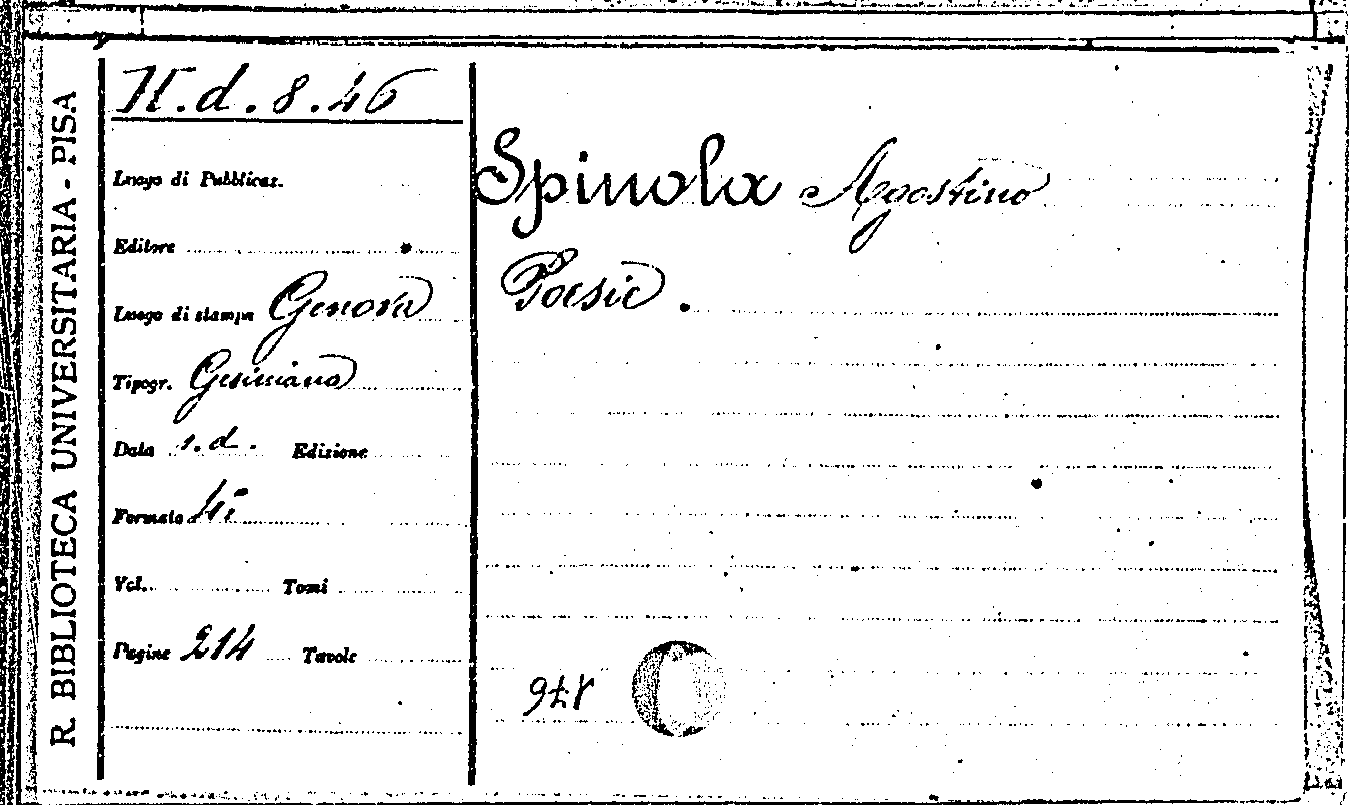 R. BIBLIOTECA UNIVERSITARIA - PISA
H.d.8.46
Luogo di Pubblicaz.
Editore
Luogo di stampa Genova
Tipogr. Gesiniana
Data s.d. Edizione
Formato 4°
Vol. Tomi
Pagine 214 Tavole
Spinola Agostino
Poesie.